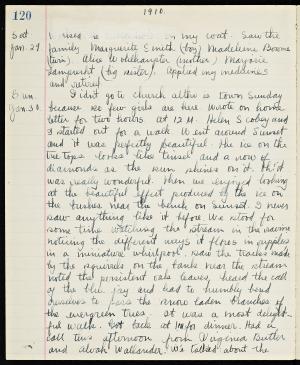 120
1910.
Sat
Jan. 29
I used a on my coat. Saw the
family Marguerite Smith (boy) Madeleine Bourne
(twin). Alice (mother) Marjorie
(big sister). Applied my medicines
and retired
Sun.
Jan. 30
Didn't go to church altho is Town Sunday
because so few girls are here Wrote on home
letter for two hours. at 12 M. Helen Scobey and
I started out for a walk. Went around Sunset
and it was perfectly beautiful. The ice on the
tree tops looks like tinsel and a row of
diamonds as the sun shines on it. It
was really wonderful. Then we enjoyed looking
at the beautiful effect produced by the ice on
the bushes near the bench on Sunset. I never
saw anything like it before. We stood for
some time watching the stream in the ravine
noticing the different ways it flows in ripples
or in a miniature whirlpool. Saw the tracks made
by the squirrels on the banks near the stream
noted the persistent oak leaves, heard the call
of the blue jay and had to humbly bend
ourselves to pass the snow laden branches of
the evergreen trees. It was a most delight-
ful walk. Got back at for dinner. Had a
call this afternoon from Virginia Butler
and Wallander. We talked about the